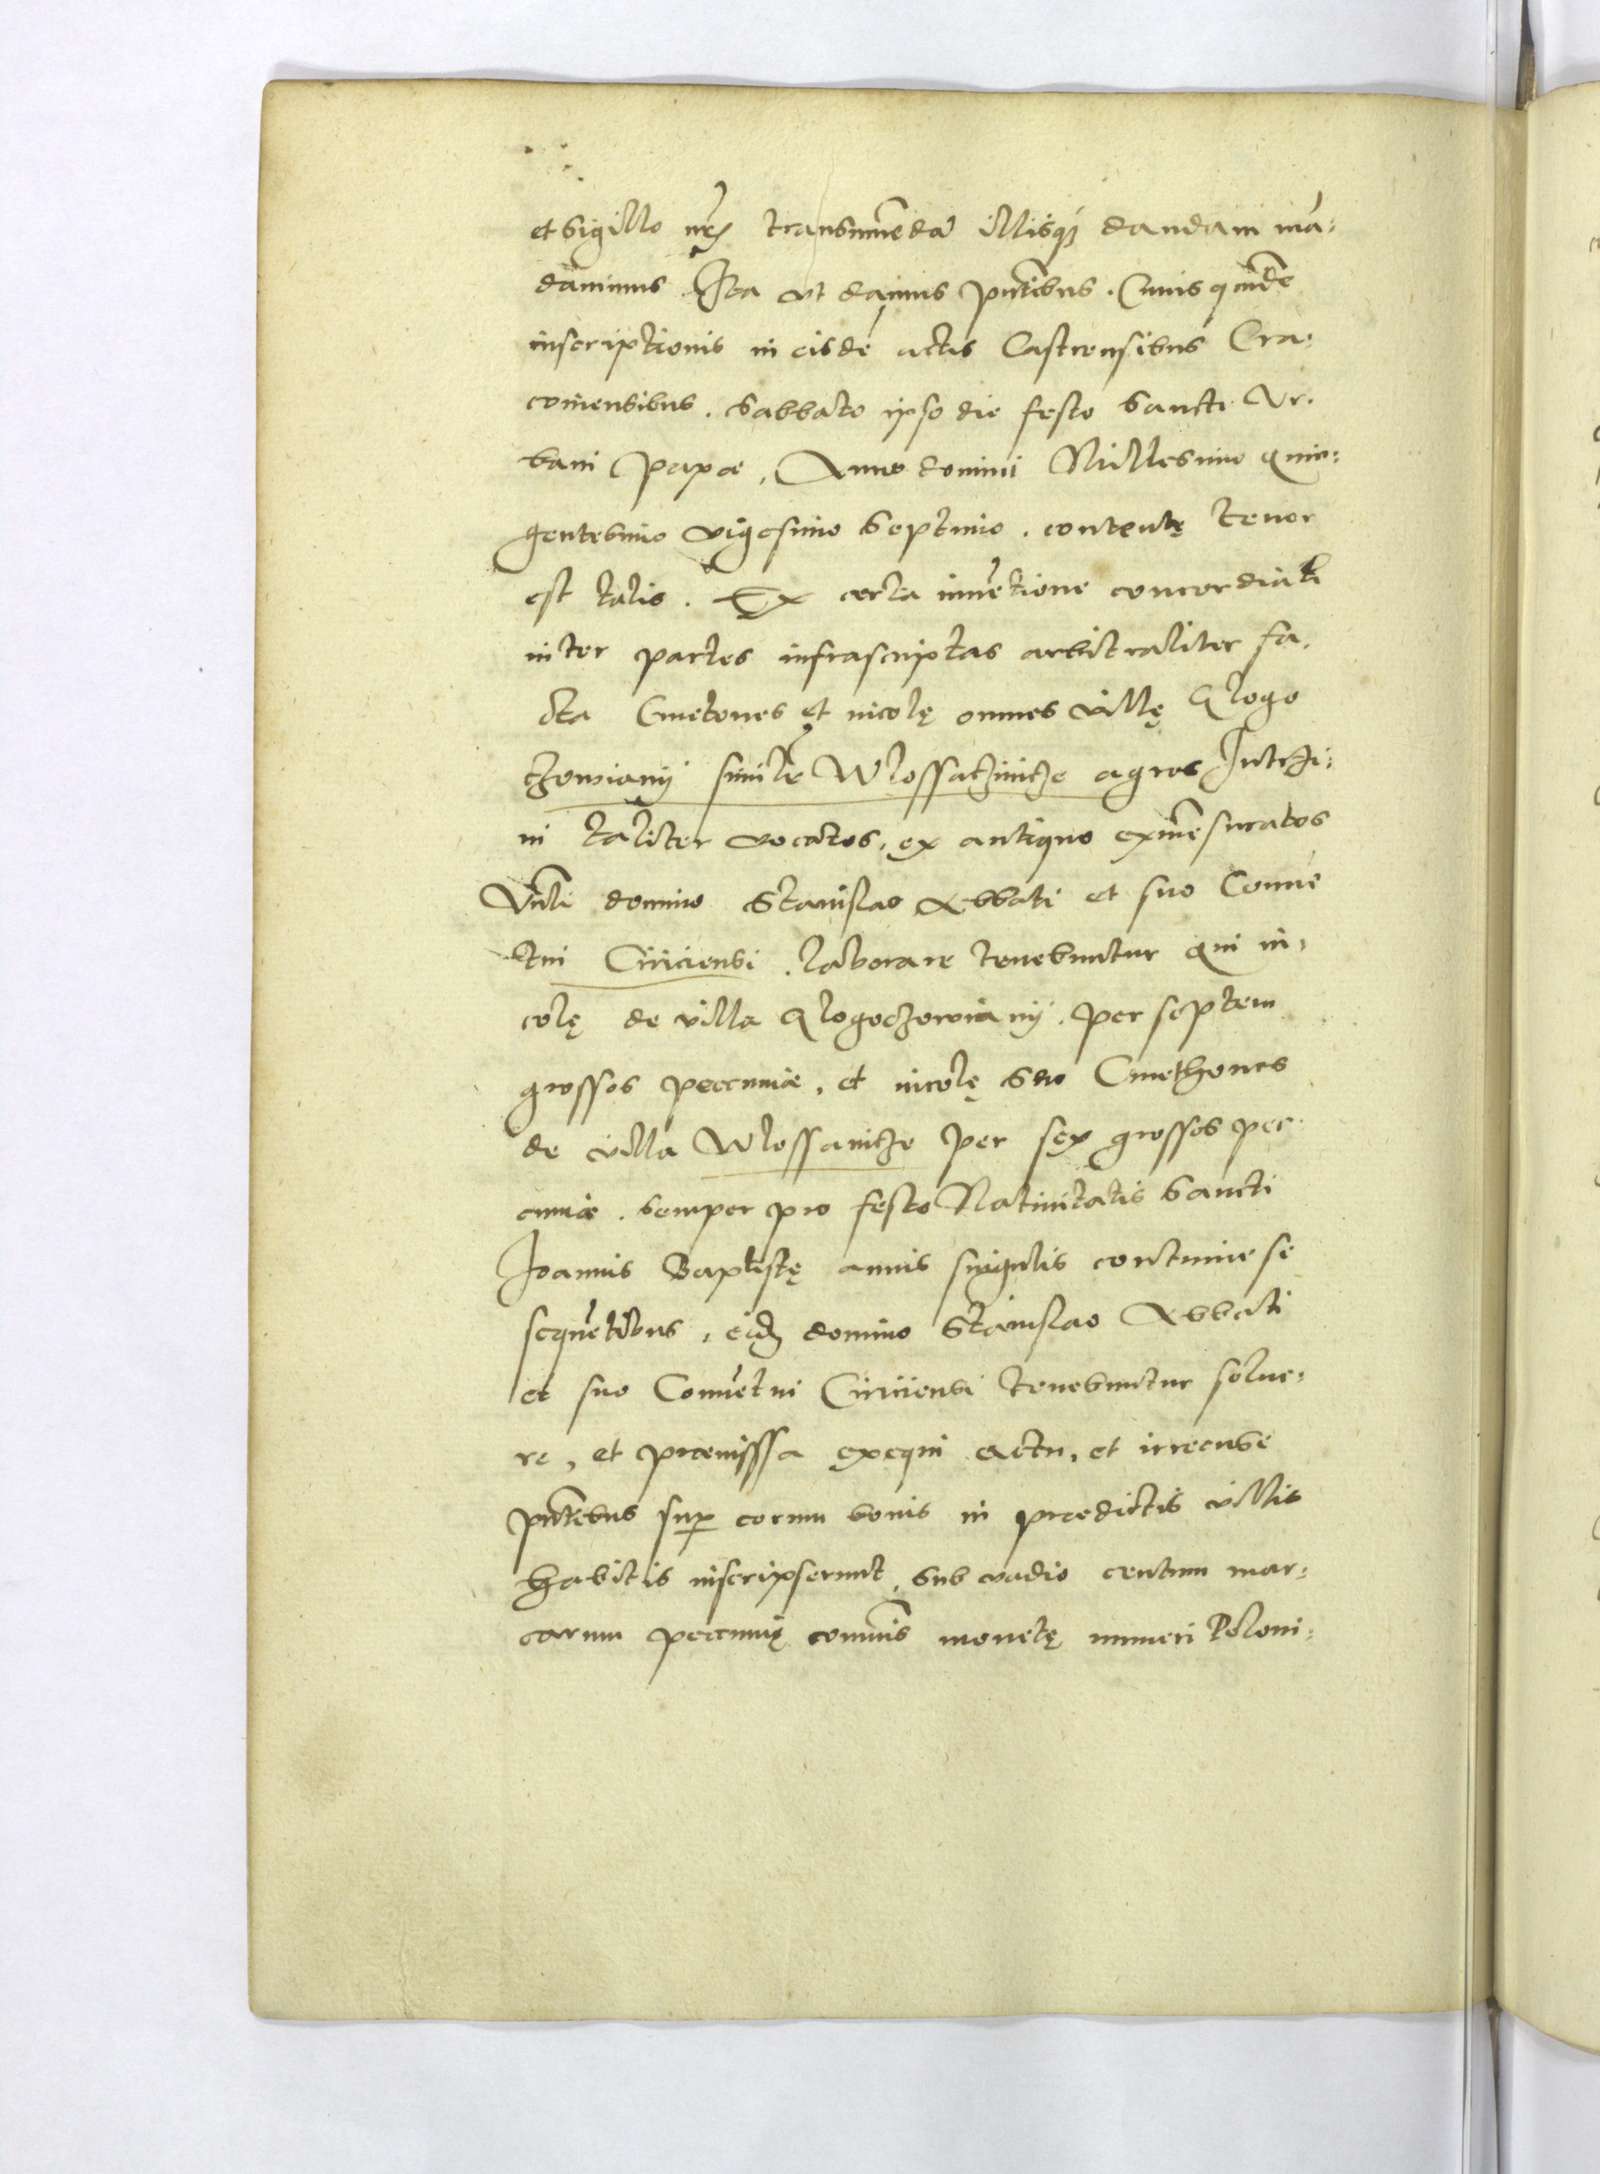 et sigillo nr̄o transsumēdā illisq₃ dandam mā-
dauimus. Ita vt damus pn̄tibus. Cuius quidē
inscriptionis in eisdē actis Castrensibus Cra-
couiensibus. Sabbato ipso die festo Sancti Vr-
bani Papæ, Anno domini Millesimo quin-
gentesimo vigesimo septimo. contentę tenor
est talis. Ex certa inuētione concordiali
inter partes infrascriptas arbitraliter fa-
cta Cmetones et incolę omnes villę Glogo
czowiany simile Wlossathczicze agros
ni taliter vocatos, ex antiquo exmēsuratos
Vn̄li domino Stanislao Abbati et suo Conuē
tui Ciriciensi. laborare tenebuntur qui in-
colę de villa Glogoczowiany. per septem
grossos pecuniæ, et incolę seu Cmethones
de villa Wlossanicze per sex grossos pec
cuniæ. semper pro festo Natiuitatis Sancti
Joannis Baptistę annis singulis continue se
sequētibus, eidē domino Stanislao Abbati
et suo Conuētui Ciriciensi tenebuntur solue-
re, et præmisssa exequi actu, et irrecusē
pn̄tibus sup̱ eorum bonis in prædictis villis
habitis inscripserunt, sub vadio centum mar-
carum pecunię com̄unis monetę numeri Poloni-